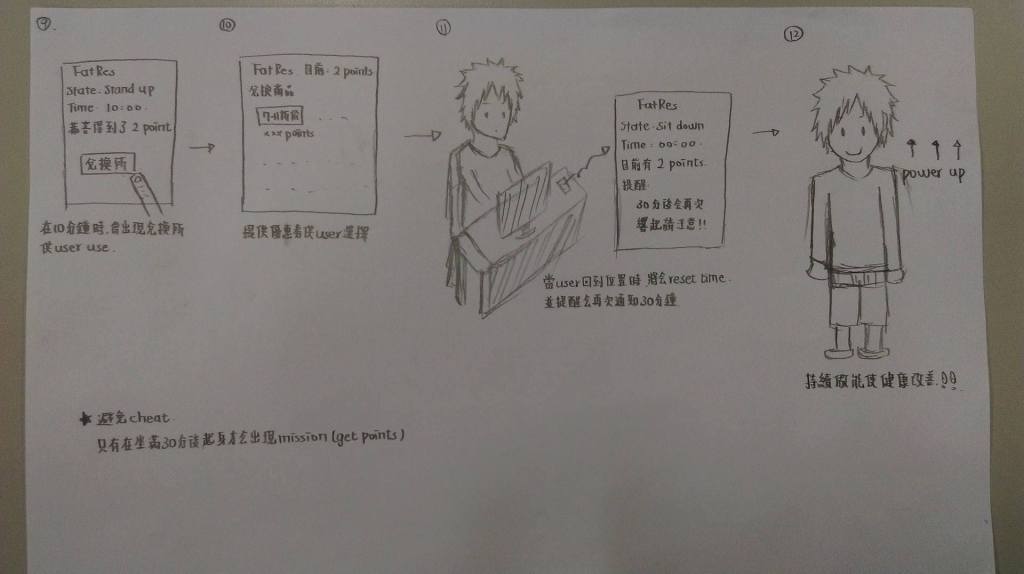 ⑨
FatRes
State. Stand up
Time. 10:00.
恭喜得到了 2 point
兌換所
在10分鐘時，會出現兌換所
供user use.
⑩
FatRes 目前. 2 points
兌換商品
7-11折價
xxx points
提供優惠卷供user選擇
⑪
FatRes
State. Sit down
Time: 00:00.
目前有 2 points.
提醒.
30分後會再次
響起請注意!!
當user回到位置時 將會reset time.
並提醒會再次通知30分鐘
⑫
power up
持續做能使健康改善.
★ 避免cheat.
只有在坐滿30分後起身才會出現mission (get points)